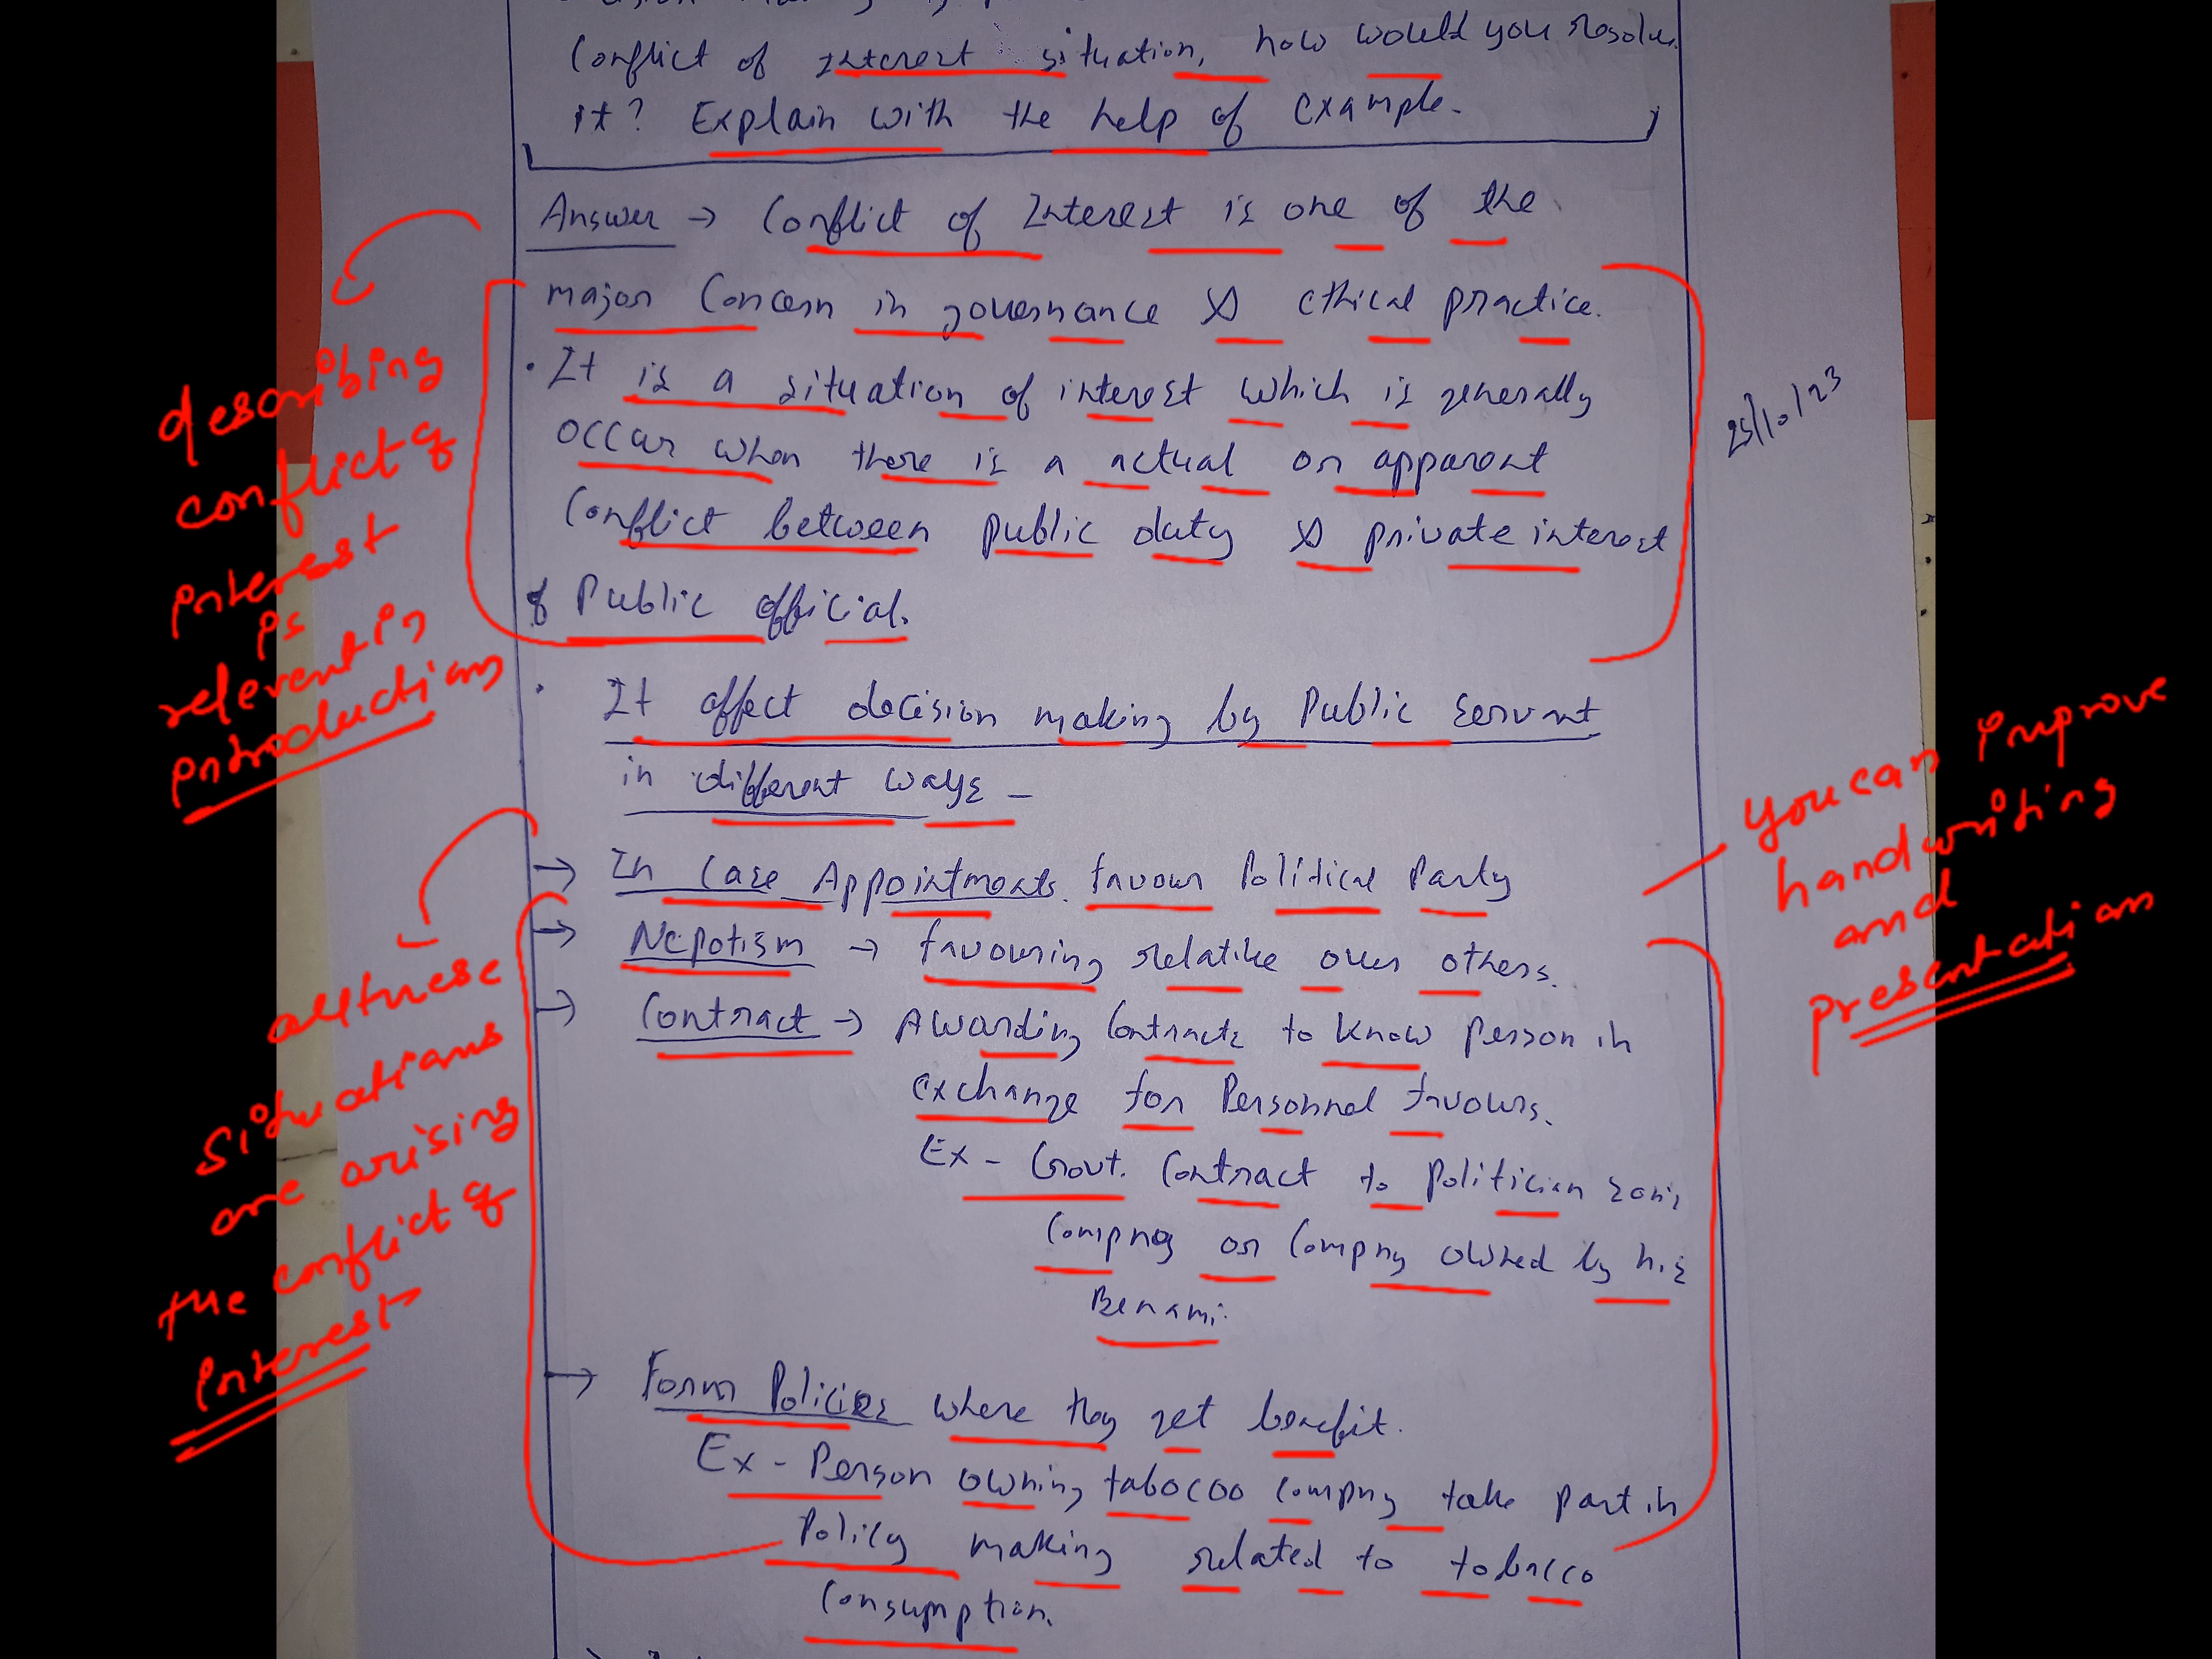 Conflict of Interest situation, how would you resolve
it? Explain with the help of example.
Answer → Conflict of Interest is one of the
major Concern in governance & ethical practice.
• It is a situation of interest which is generally
occur when there is a actual or apparent
Conflict between public duty & private interest
of Public official.
• It affect decision making by Public servant
in different ways –
→ In Case Appointments favour Political Party
→ Nepotism → favouring relative over others.
→ Contract → Awarding Contracts to know person in
exchange for Personnel favours.
Ex – Govt. Contract to Politician son's
Compny or Compny owned by his
Benami.
→ Form Policies where they get benefit.
Ex – Person owning tabocoo Compny take part in
Policy making related to tobacco
Consumption.
describing
conflict of
interest
is
relevent in
introduction
all these
situations
are arising
the conflict of
interest
25/10/23
you can improve
handwriting
and
presentation